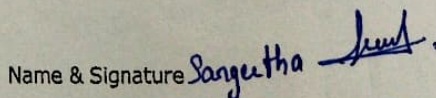 Name & Signature Sangeetha